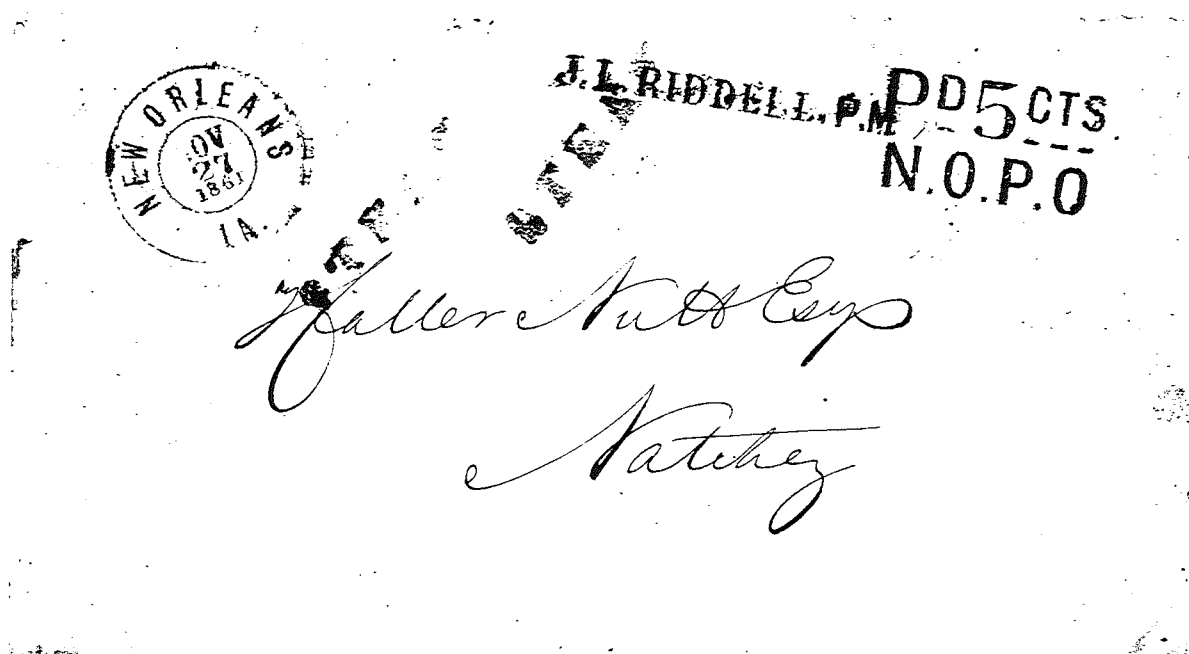 NEW ORLEANS
NOV
27
1861
LA.
J.L. RIDDELL. P.M
PD 5 CTS.
N.O.P.O
Haller Nutt Esqr
Natchez